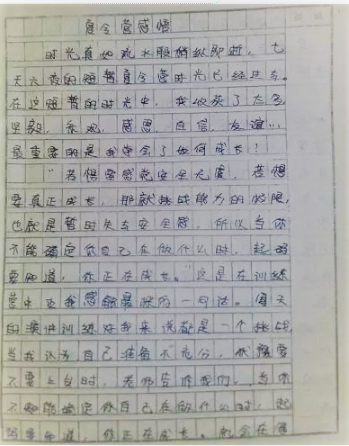 夏令营感悟
时光真如流水般稍纵即逝，七
天六夜的短暂夏令营时光已经过去。
在这短暂的时光中，我收获了太多
坚毅，乐观，感恩，自信，友谊…，
最重要的是我学会了如何成长！
“若想要感觉安全无虞，若想
要真正成长，那就挑战能力的极限，
也就是暂时失去安全感，所以当你
不能确定你自己在做什么时，起码
要知道，你正在成长。”这是在训练
营中 我感 最深的一句话。
的演讲训练对我来说都是一个挑战，
当我认为自己准备不充分，
不要上台时，老师告诉我们，当你
不能确定你自己在做什么时，起
码要知道，你正在成长，